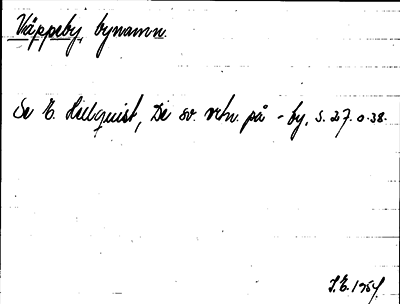 Väppeby, bynamn.
Se E. Hellquist, De sv. ortn. på -by, s. 27 o. 38.
S.E. 1954